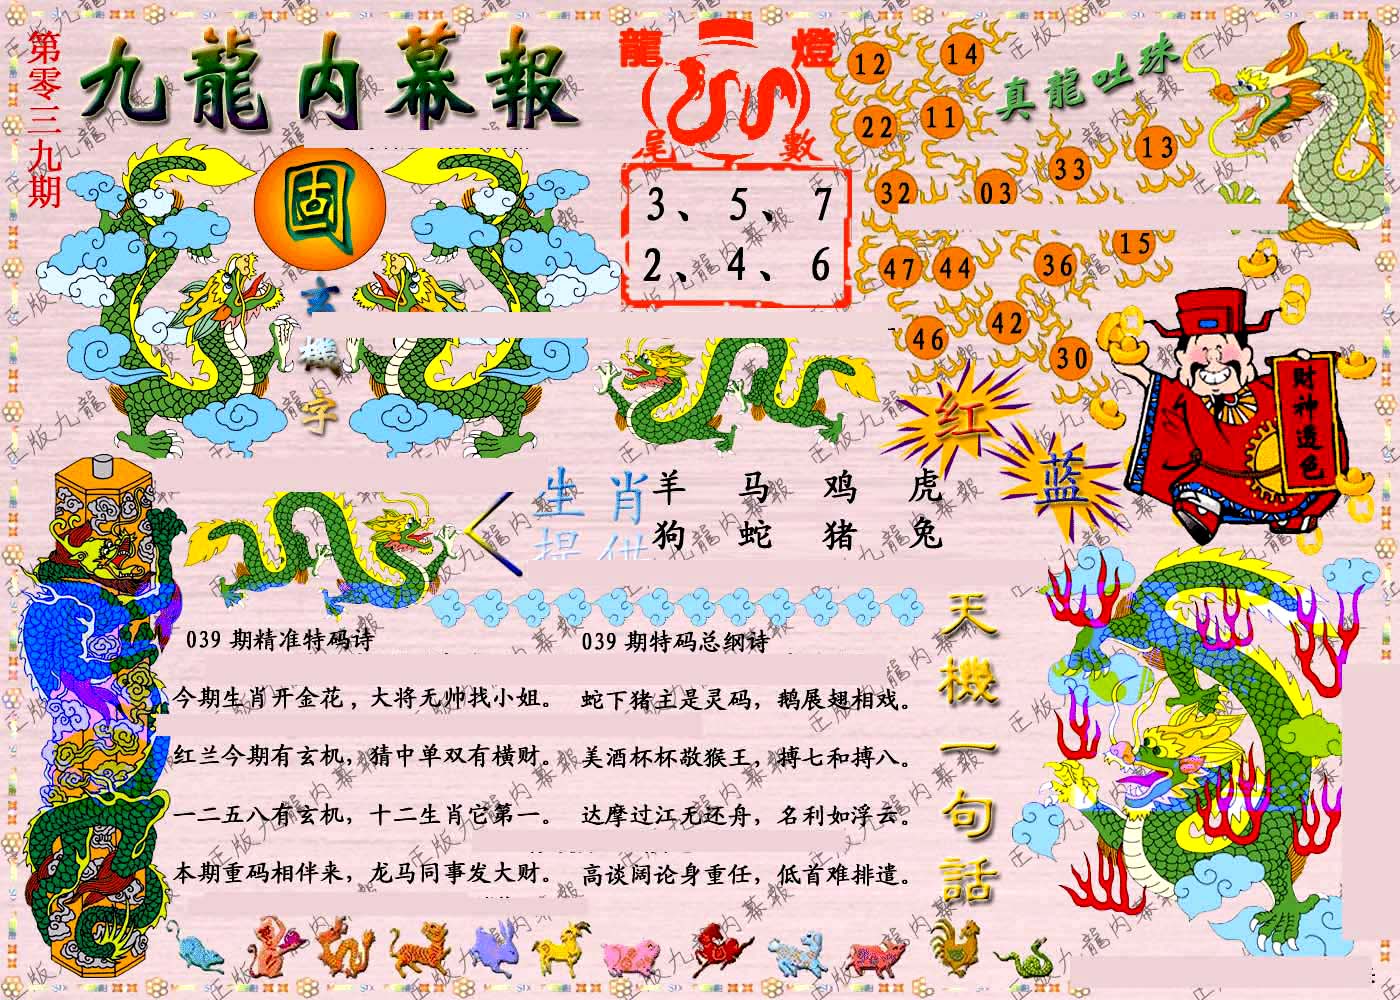 第零三九期
九龍内幕報
固
玄機字
龍燈
尾數
3、5、7
2、4、6
真龍吐珠
12 14
22 11
33 13
32 03
15
47 44 36
46 42
30
红
蓝
财神透色
生肖
提供
羊 马 鸡 虎
狗 蛇 猪 兔
039 期精准特码诗
今期生肖开金花，大将无帅找小姐。
红兰今期有玄机，猜中单双有横财。
一二五八有玄机，十二生肖它第一。
本期重码相伴来，龙马同事发大财。
039 期特码总纲诗
蛇下猪主是灵码，鹅展翅相戏。
美酒杯杯敬猴王，搏七和搏八。
达摩过江无还舟，名利如浮云。
高谈阔论身重任，低首难排遣。
天機一句話
正版九龍内幕報